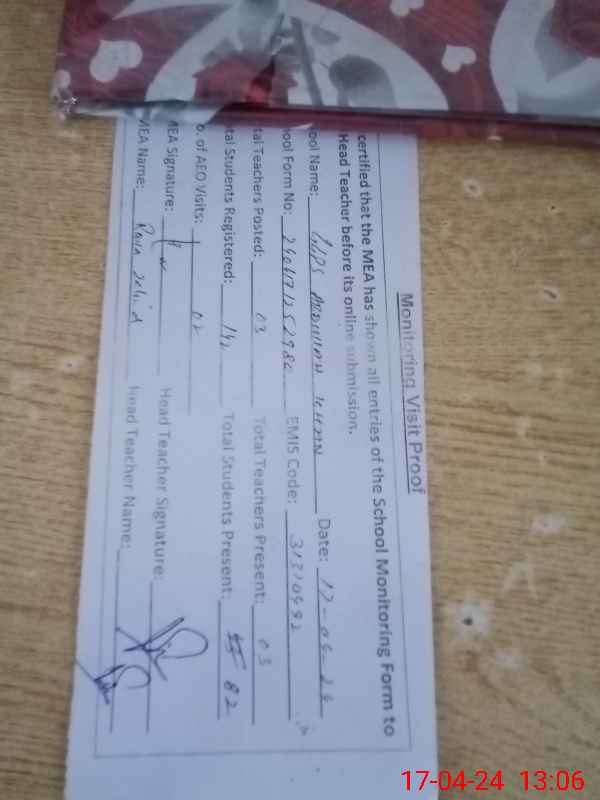 Monitoring Visit Proof
certified that the MEA has shown all entries of the School Monitoring Form to
Head Teacher before its online submission.
ool Name: GPS ABDULLAH KHAN Date: 17-04-24
ool Form No: EMIS Code: 31310492
tal Teachers Posted: 03 Total Teachers Present: 03
tal Students Registered: 142 Total Students Present: 82
o. of AEO Visits: 02
MEA Signature: Head Teacher Signature:
MEA Name: Head Teacher Name:
17-04-24 13:06